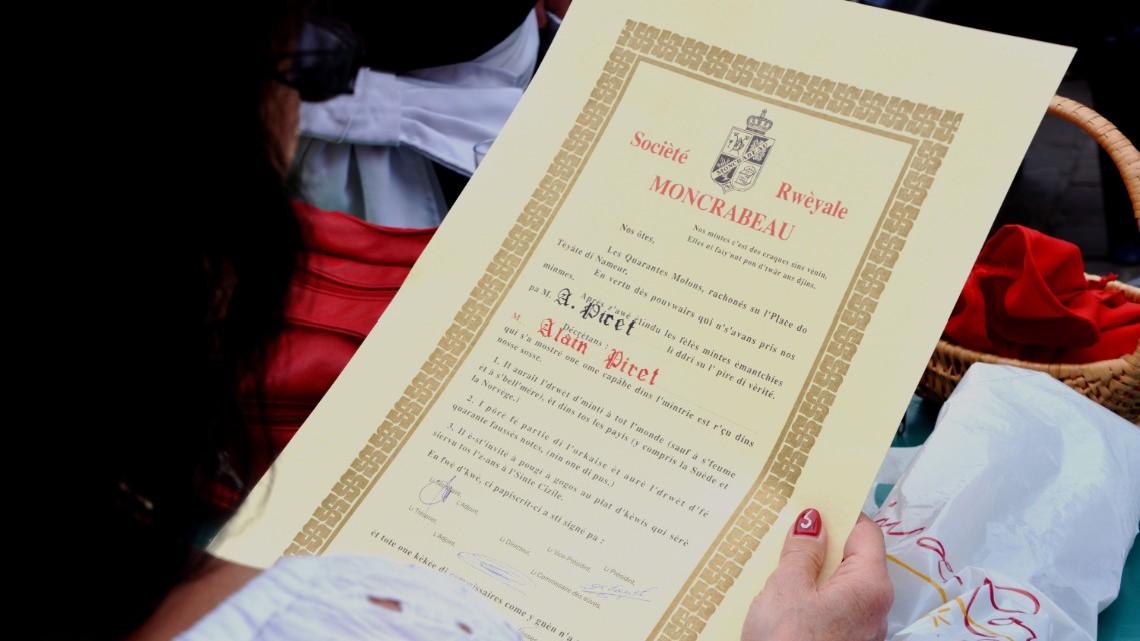 MONCRABEAU
Socièté
Rwèyale
MONCRABEAU
Nos mintes c'est des craques sins venin,
Elles ni faiy'not pon d'twàr ans djins.
Nos ôtes,
Les Quarantes Molons, rachonés su l'Place do
Teyâte di Nameur,
En vertu dès pouvwairs qui n's'avans pris nos
minmes.
Après z'auè étindu les fèlès mintes émantchies
pa M. A. Piret li ddri su l' pire di vérité.
Décrètans :
M. Alain Piret est r'çu dins
qui s'a mostré one ome capâbe dins l'mintrie
nosse sosse.
1. Il aurait l'drwèt d'minti à tot l'monde (sauf à s'feume
èt à s'bell'mére), èt dins tos les payis (y compris la Suède et
la Norvege.)
2. I pôrè fè partie di l'orkaise èt aurè l'drwèt d'fè
quarante faussès notes, (nin one di pus.)
3. Il è-st'invité à pougi à gogos au plat d'kèwis qui sèrè
siervu tos l'z-ans à l'Sinte Cizile.
En fwè d'kwè, ci papiscrit-ci a sti signé pa :
L'Adjoint,
Li Trésorier,
L'Adjoint,
Li Directeur,
Li Vice-Président,
Li Président,
Li Commissaire des œuves,
èt tote one kèkée di comissaires come y guèn n'a
S